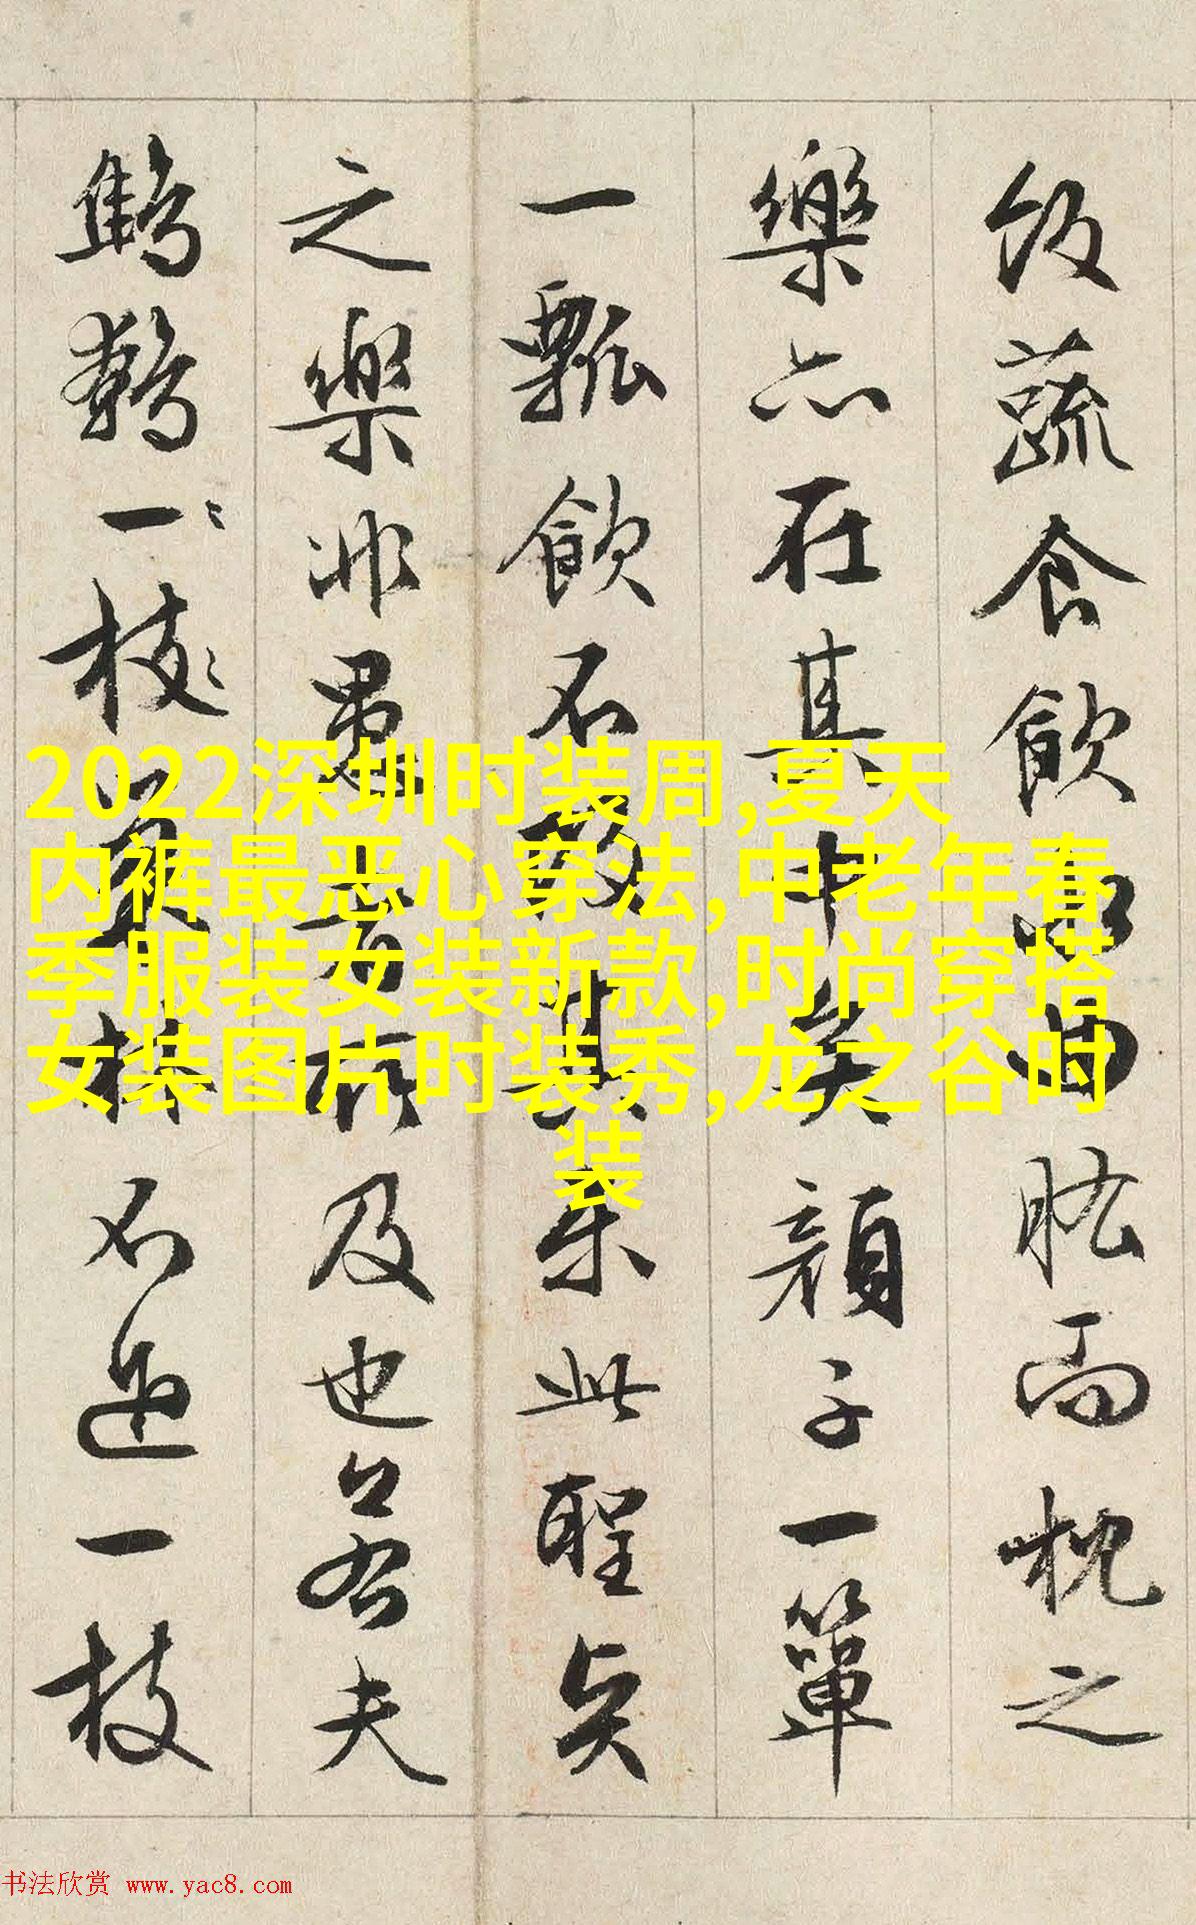 飯蔬食飲水曲肱而枕之
樂亦在其中矣顏子一簞
一瓢飲不改其樂此聖賢
之樂非愚者所及也若夫
鷦鷯一枝巢林不過一枝
2022深圳时装周,夏天
内裤最恶心穿法,中老年春
季服装女装新款,时尚穿搭
女装图片时装秀,龙之谷时
装
书法欣赏 www.yac8.com